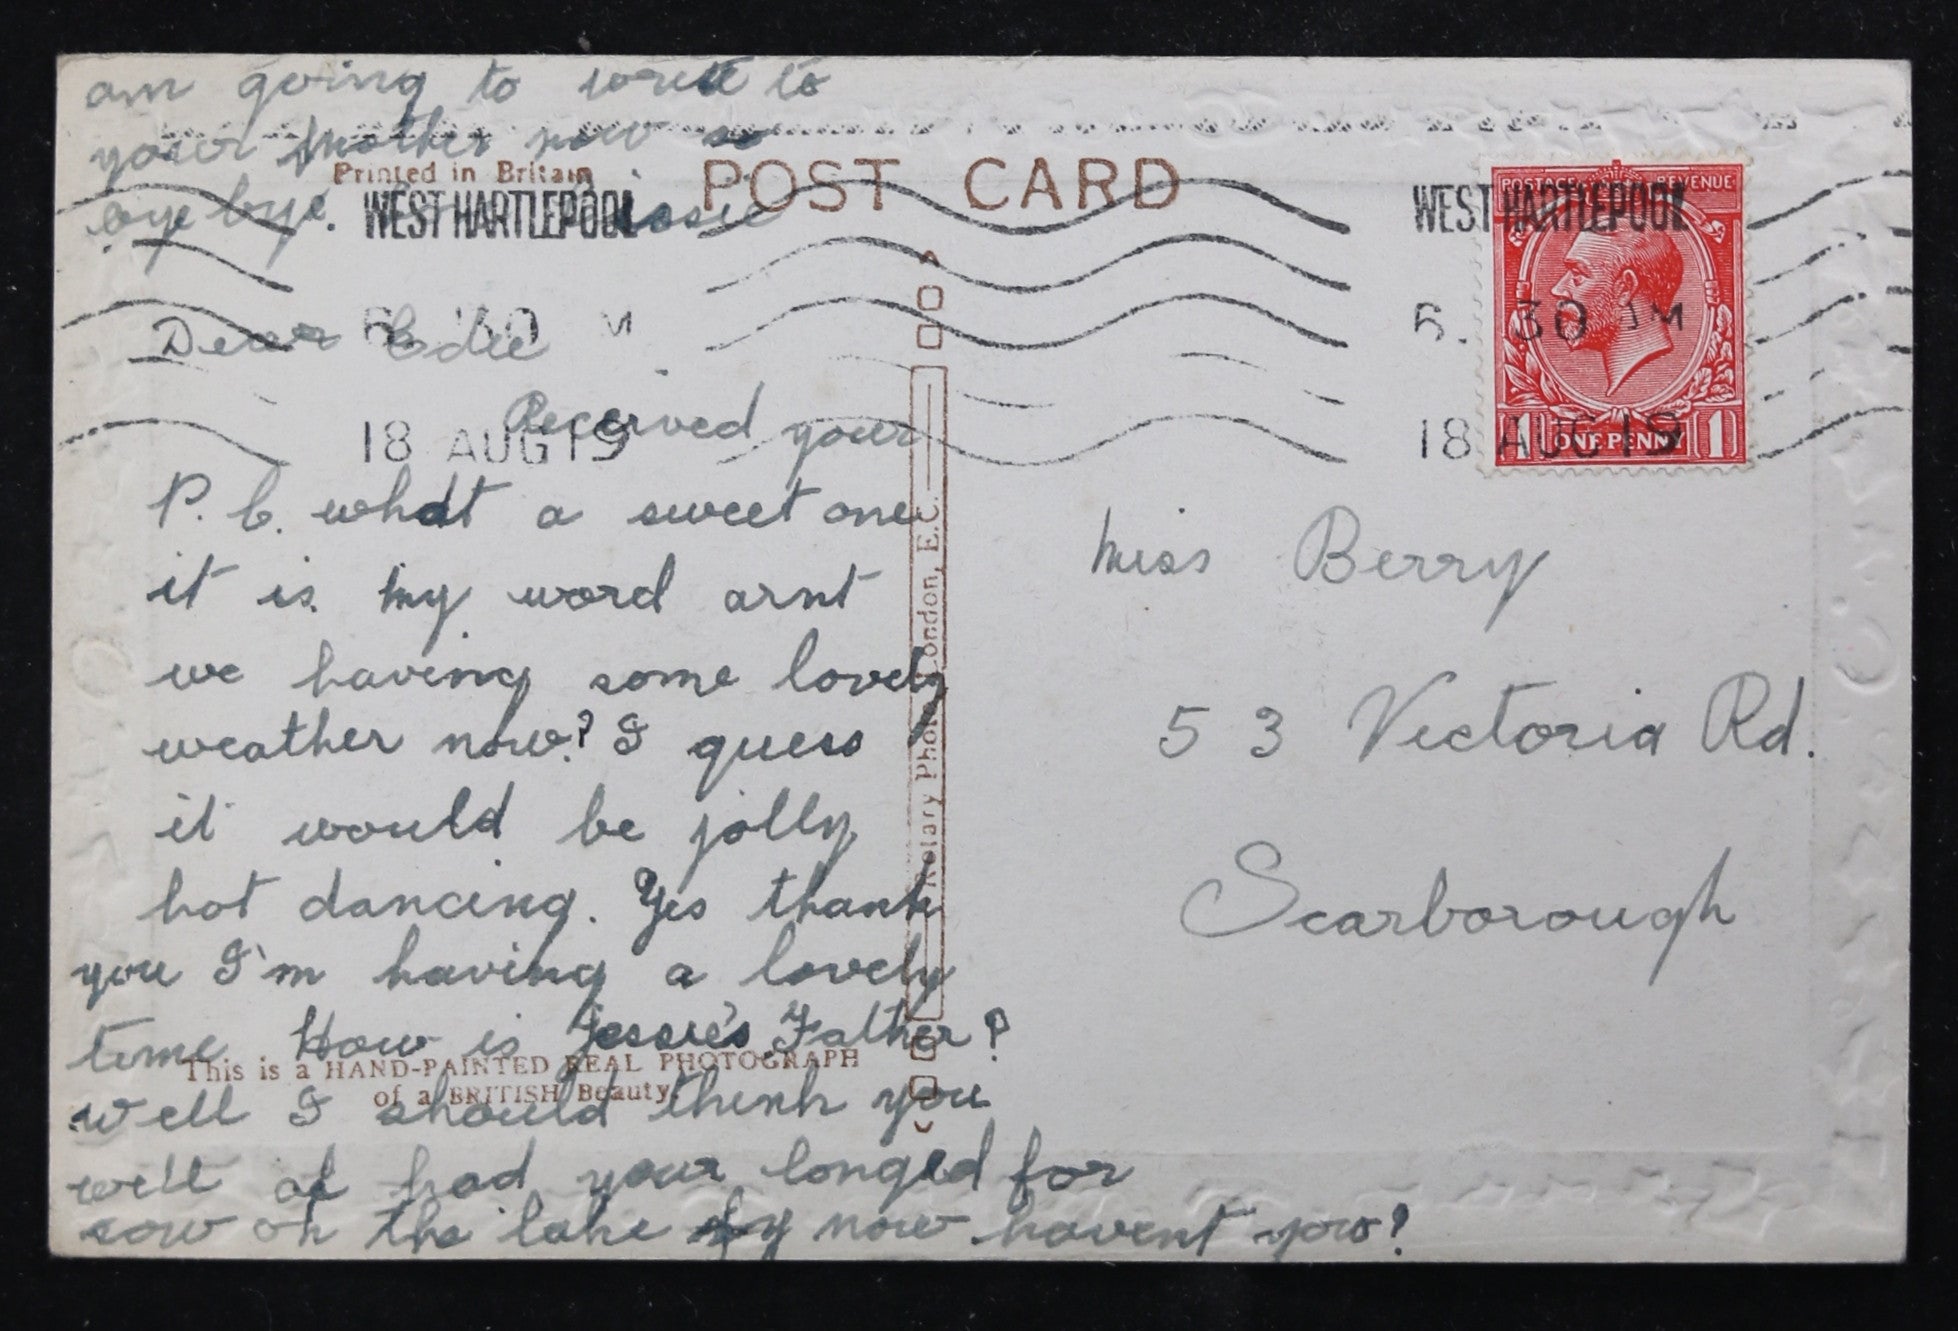 am going to write to
your Mother now so
bye bye. Rosie
Printed in Britain
POST CARD
WEST HARTLEPOOL
6. 30 M
18 AUG 19
WEST HARTLEPOOL
6. 30 M
18 AUG 19
POSTAGE REVENUE
1 ONE PENNY 1
Dear Edie
Received your
P. C. what a sweet one
it is. My word arnt
we having some lovely
weather now? I guess
it would be jolly
hot dancing. Yes thank
you I'm having a lovely
time How is Jessie's Father?
well I should think you
well of had your longed for
row on the lake by now havent you?
This is a HAND-PAINTED REAL PHOTOGRAPH
of a BRITISH Beauty.
Rotary Photo, London, E.C.
Miss Berry
53 Victoria Rd.
Scarborough